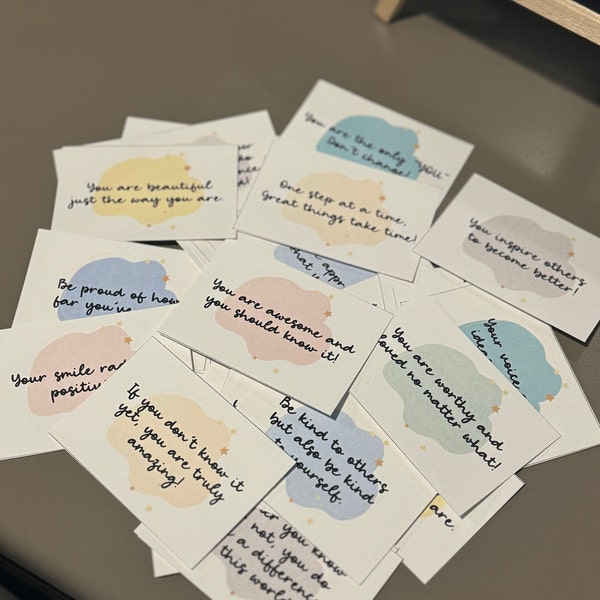 You are the only "YOU"
Don't change!
You are beautiful
just the way you are.
One step at a time,
Great things take time!
You inspire others
to become better!
Be proud of how
far you've
You are awesome and
you should know it!
Your voice
Your smile
positiv
You are worthy and
loved no matter what!
If you don't know it
yet, you are truly
amazing!
Be kind to others
but also be kind
to yourself.
are.
you know
not, you do
a difference
this world